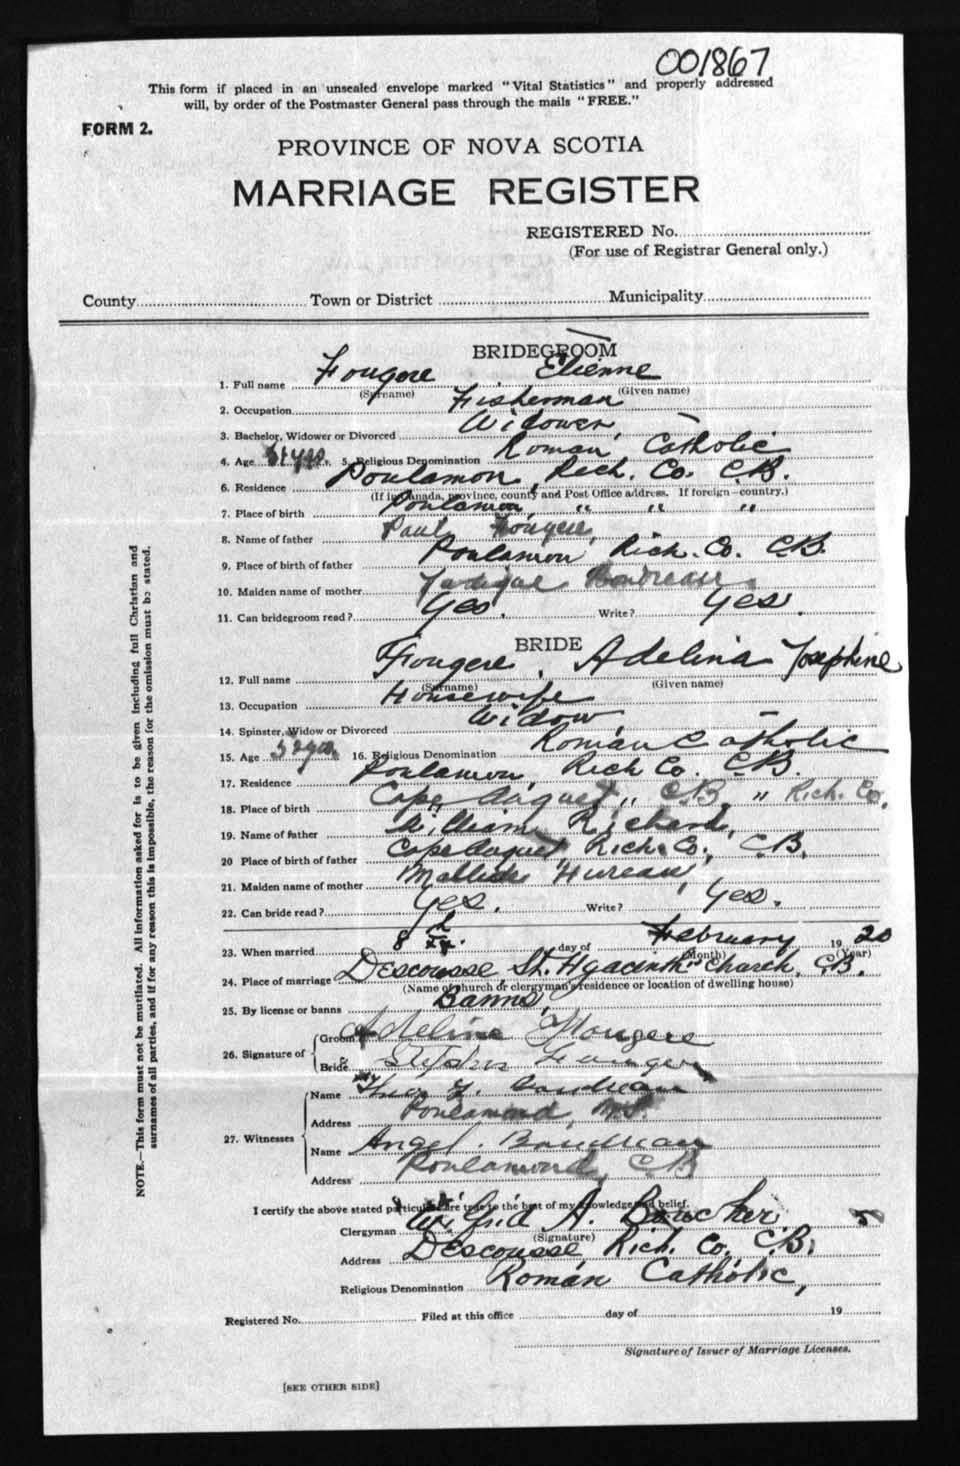 001867
This form if placed in an unsealed envelope marked "Vital Statistics" and properly addressed
will, by order of the Postmaster General pass through the mails "FREE."
FORM 2.
PROVINCE OF NOVA SCOTIA
MARRIAGE REGISTER
REGISTERED No.
(For use of Registrar General only.)
County Town or District Municipality
BRIDEGROOM
1. Full name Fougere, Etienne
(Surname) (Given name)
2. Occupation Fisherman
3. Bachelor, Widower or Divorced Widower,
4. Age yrs. 5. Religious Denomination Roman Catholic
6. Residence Poulamon, Rich. Co. C.B.
(If in Canada, province, county and Post Office address. If foreign—country.)
7. Place of birth Poulamon, " " "
8. Name of father Paul Fougere,
9. Place of birth of father Poulamon Rich. Co. C.B.
10. Maiden name of mother Boudreau
11. Can bridegroom read? Yes. Write? Yes.
BRIDE
12. Full name Fougere, Adelina Josephine
(Surname) (Given name)
13. Occupation Housewife
14. Spinster, Widow or Divorced Widow,
15. Age yrs. 16. Religious Denomination Roman Catholic
17. Residence Poulamon, Rich Co. C.B.
18. Place of birth Cape August " C.B. " Rich. Co.
19. Name of father William Richard,
20 Place of birth of father Cape Auguet, Rich. Co., C.B.
21. Maiden name of mother Fureau,
22. Can bride read? Yes. Write? Yes.
23. When married 8th day of February 1920
(Month) (Year)
24. Place of marriage Descousse St. Hyacinth Church, C.B.
(Name of church or clergyman's residence or location of dwelling house)
25. By license or banns Banns,
26. Signature of Groom Adeline Fougere
Bride Fougere
27. Witnesses Name Boudreau
Address Poulamond, N.S.
Name Angel. Boudreau
Address Poulamond, C.B
I certify the above stated particulars are true to the best of my knowledge and belief.
Clergyman Wilfrid A. Boucher.
(Signature)
Address Descousse, Rich. Co. C.B.
Religious Denomination Roman Catholic,
Registered No. Filed at this office day of 19
Signature of Issuer of Marriage Licenses.
[SEE OTHER SIDE]
NOTE.—This form must not be mutilated. All information asked for is to be given including full Christian and
surnames of all parties, and if for any reason this is impossible, the reason for the omission must be stated.